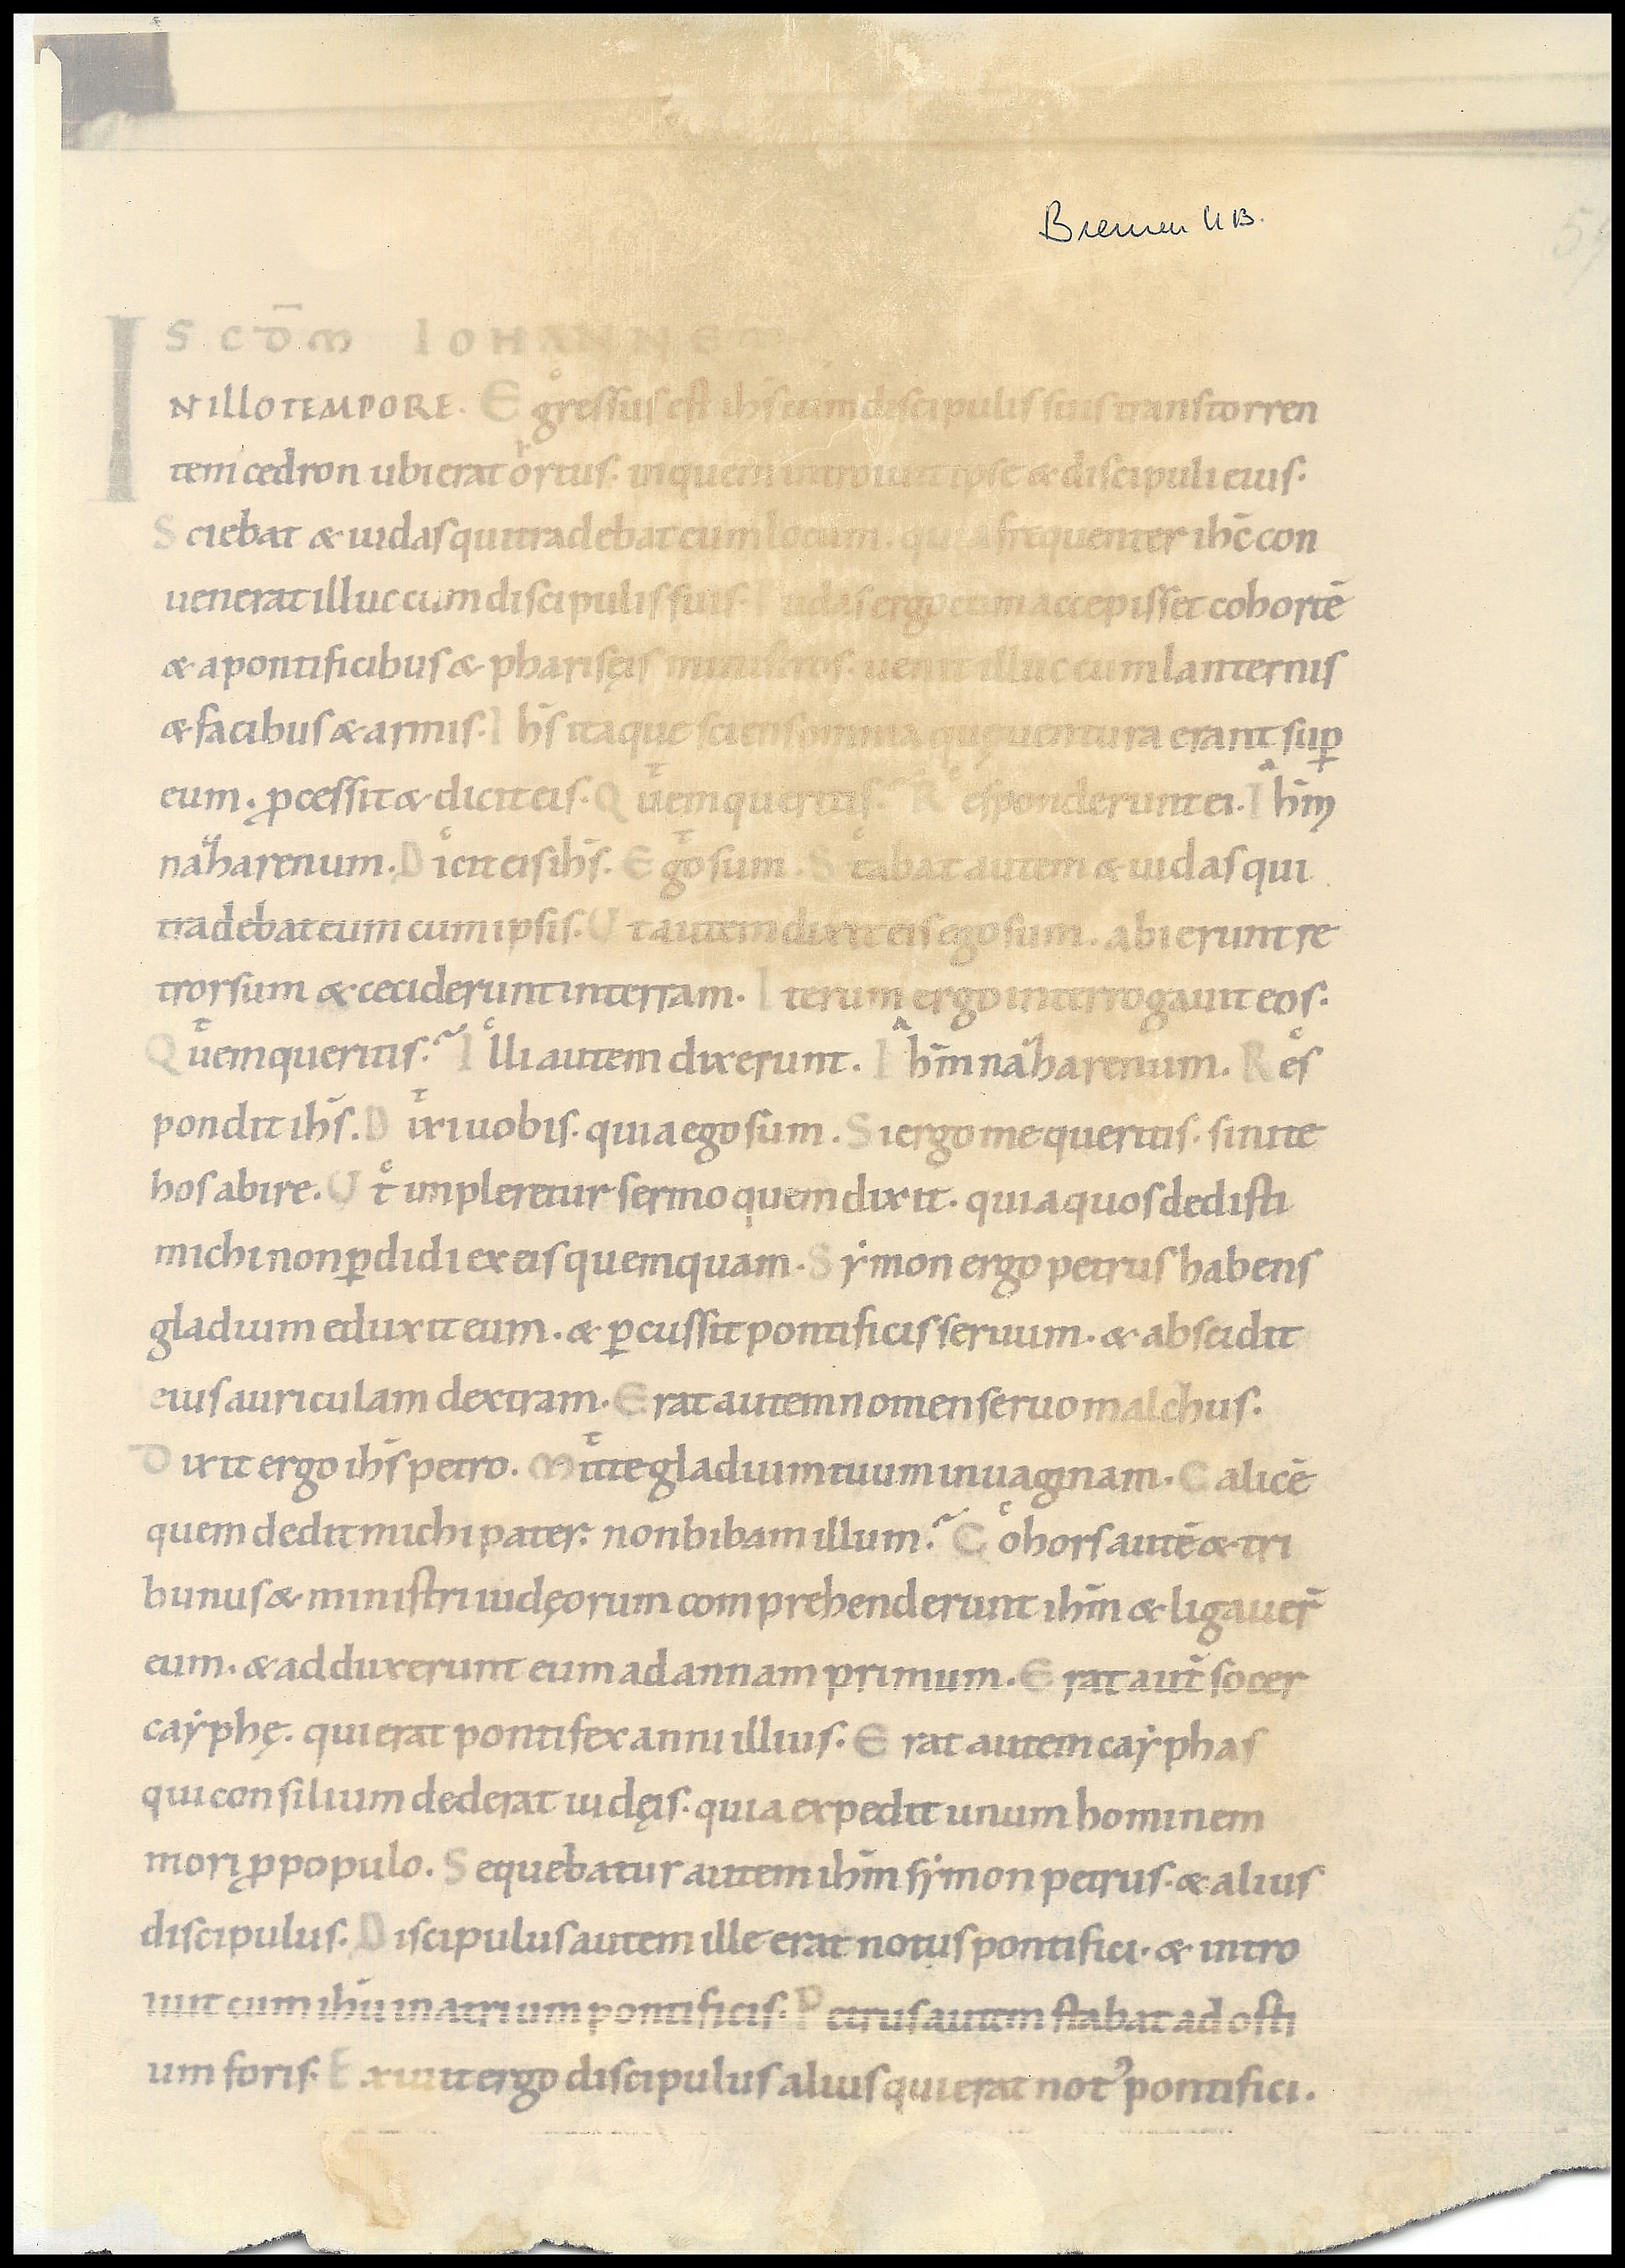 Bremen UB.
59
S SCDM IOHANNEM
IN ILLO TEMPORE. Egressus est ihs cum discipulis suis trans torren
tem cedron ubi erat ortus. in quem introiuit ipse & discipuli eius.
Sciebat & iudas qui tradebat eum locum. quia frequenter ihc con
uenerat illuc cum discipulis suis. Iudas ergo cum accepisset cohortē
& a pontificibus & pharisęis ministros. uenit illuc cum lanternis
& facibus & armis. Ihs itaque sciens omnia quę uentura erant suꝑ
eum. ꝓcessit & dicit eis. Quem queritis. Responderunt ei. Ihm̄
naharenum. Dicit eis ihs̄. Ego sum. Stabat autem & iudas qui
tradebat eum cum ipsis. Ut autem dixit eis ego sum. abierunt re
trorsum & ceciderunt in terram. Iterum ergo interrogauit eos.
Quem queritis. Illi autem dixerunt. Ihm̄ naharenum. Res
pondit ihs̄. Dixi uobis. quia ego sum. Si ergo me queritis. sinite
hos abire. Ut impleretur sermo quem dixit. quia quos dedisti
michi non ꝑdidi ex eis quemquam. Sẏmon ergo petrus habens
gladium eduxit eum. & ꝑcussit pontificis seruum. & abscidit
eius auriculam dextram. Erat autem nomen seruo malchus.
Dixit ergo ihs̄ petro. Mitte gladium tuum in uaginam. Calicē
quem dedit michi pater. non bibam illum. Cohors autē & tri
bunus & ministri iudęorum comprehenderunt ihm̄ & ligauer̄
eum. & adduxerunt eum ad annam primum. Erat aut̄ socer
caẏphę. qui erat pontifex anni illius. Erat autem caẏphas
qui consilium dederat iudęis. quia expedit unum hominem
mori ꝓ populo. Sequebatur autem ihm̄ sẏmon petrus. & alius
discipulus. Discipulus autem ille erat notus pontifici. & intro
iuit cum ihū in atrium pontificis. Petrus autem stabat ad osti
um foris. Exiuit ergo discipulus alius qui erat notꝰ pontifici.